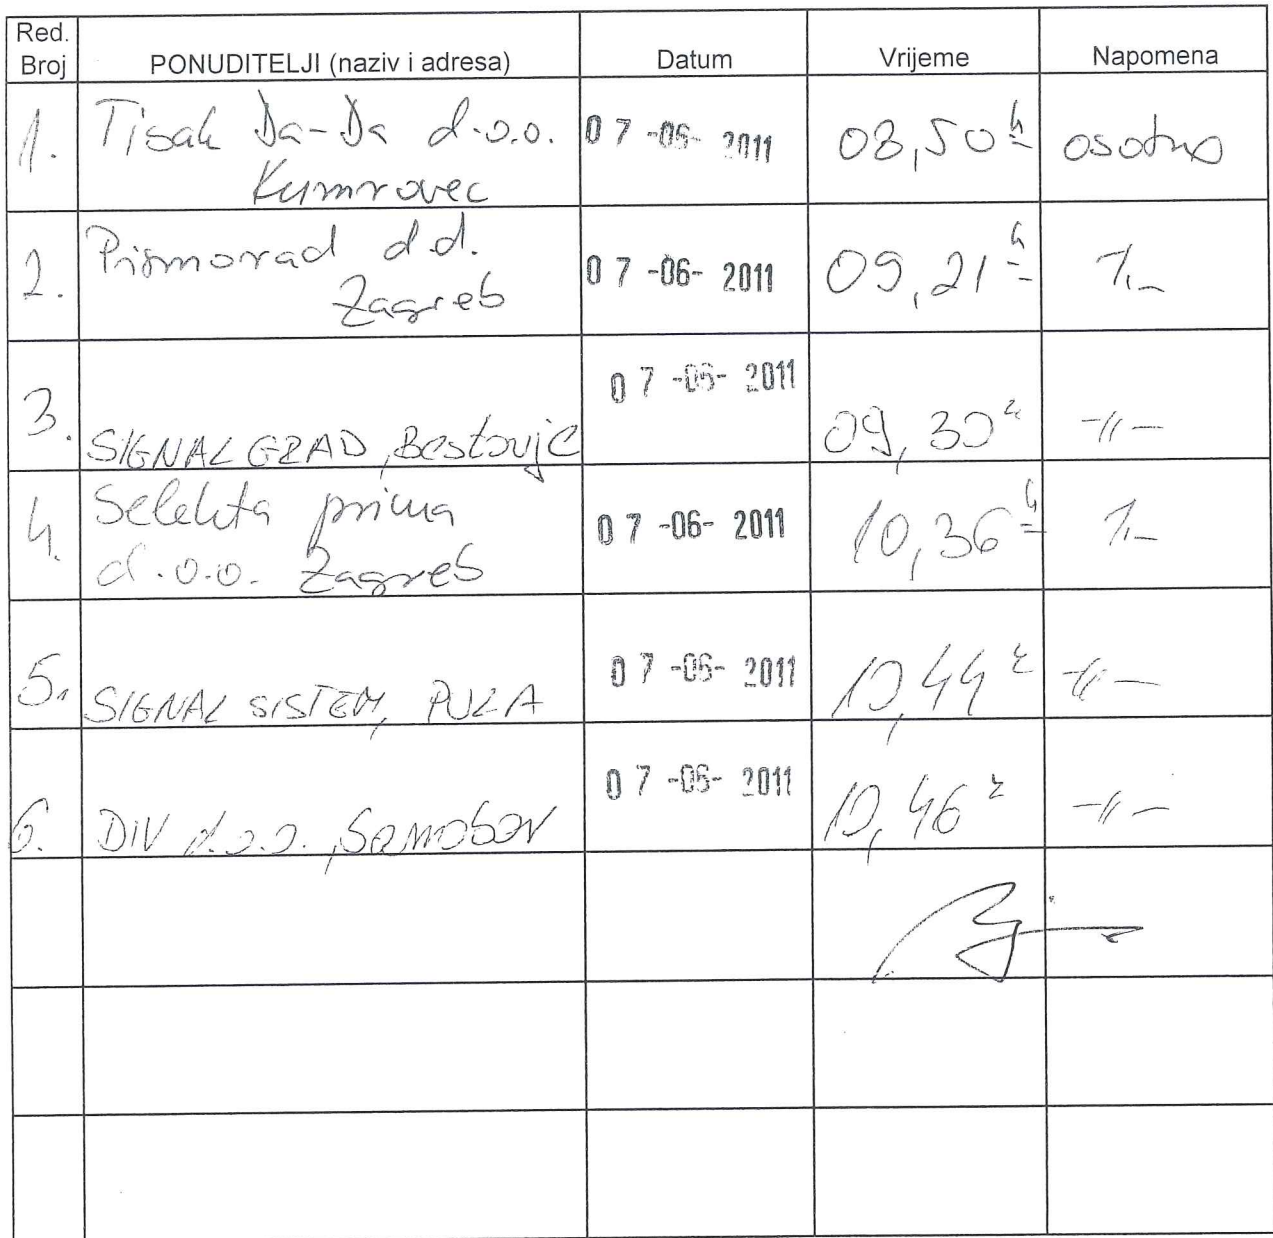 Red.
Broj PONUDITELJI (naziv i adresa) Datum Vrijeme Napomena
1. Tisak Đa-Đa d.o.o. 07-06-2011 08,50 h osobno
Kumrovec
2. Prismorad d.d. 07-06-2011 09,21 h -//-
Zagreb
3. SIGNALGRAD, Bestovje 07-06-2011 09,30 h -//-
4. Selekta prima 07-06-2011 10,36 h -//-
d.o.o. Zagreb
5. SIGNAL SISTEM, PULA 07-06-2011 10,44 h -//-
6. DIV d.o.o., Samobor 07-06-2011 10,46 h -//-